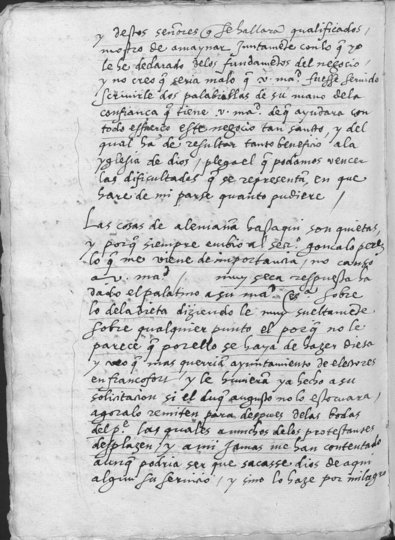 y destos señores q̃ se hallarã qualificados,
mostro de amaynar Juntamẽte con lo q̃ yo
le he declarado de los fundamẽtos del negocio,
y no creo q̃ seria malo q̃ v. mag.ᵈ fuesse servido
scrivirle dos palabrillas de su mano de la
confiança q̃ tiene v. mag.ᵈ de q̃ ayudara con
todo esfuerço este negocio tan santo, y del
qual ha de resultar tanto beneficio a la
yglesia de dios, plega el q̃ podamos vencer
las dificultades q̃ se representã, en que
hare de mi parte quanto pudiere /
Las cosas de alemaña hasta aqui son quietas,
y porq̃ siempre embio al secr.º gonçalo perez
lo q̃ me viene de importancia, no canso
a v. mag.ᵈ / muy seca respuesta ha
dado el palatino a su mag.ᵈ sobre
lo de la dieta diziendole muy sueltamẽte
sobre qualquier punto el porq̃ no le
parece q̃ por ello se haya de hazer dieta
y veo q̃ mas querria ayuntamiento de electores
en francofort, y le huviera ya hecho a su
solicitacion si el duq̃ augusto no lo estorvara,
agora lo remiten para despues de las bodas
del p.ᵉ las quales a muchos de los protestantes
desplazen, y a mi jamas me han contentado
aunq̃ podria ser que sacasse dios de aqui
algun su servicio, y sino lo haze por milagro